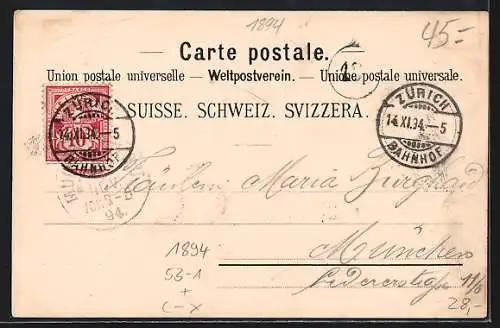 1894
45-
Carte postale.
Union postale universelle. — Weltpostverein. — Unione postale universale.
SUISSE. SCHWEIZ. SVIZZERA.
10
ZÜRICH
14.XI.94.-5
BAHNHOF
ZÜRICH
14.XI.94.-5
BAHNHOF
94.
Fräulein Maria
München
1894
53-1
+
C-x
28,-